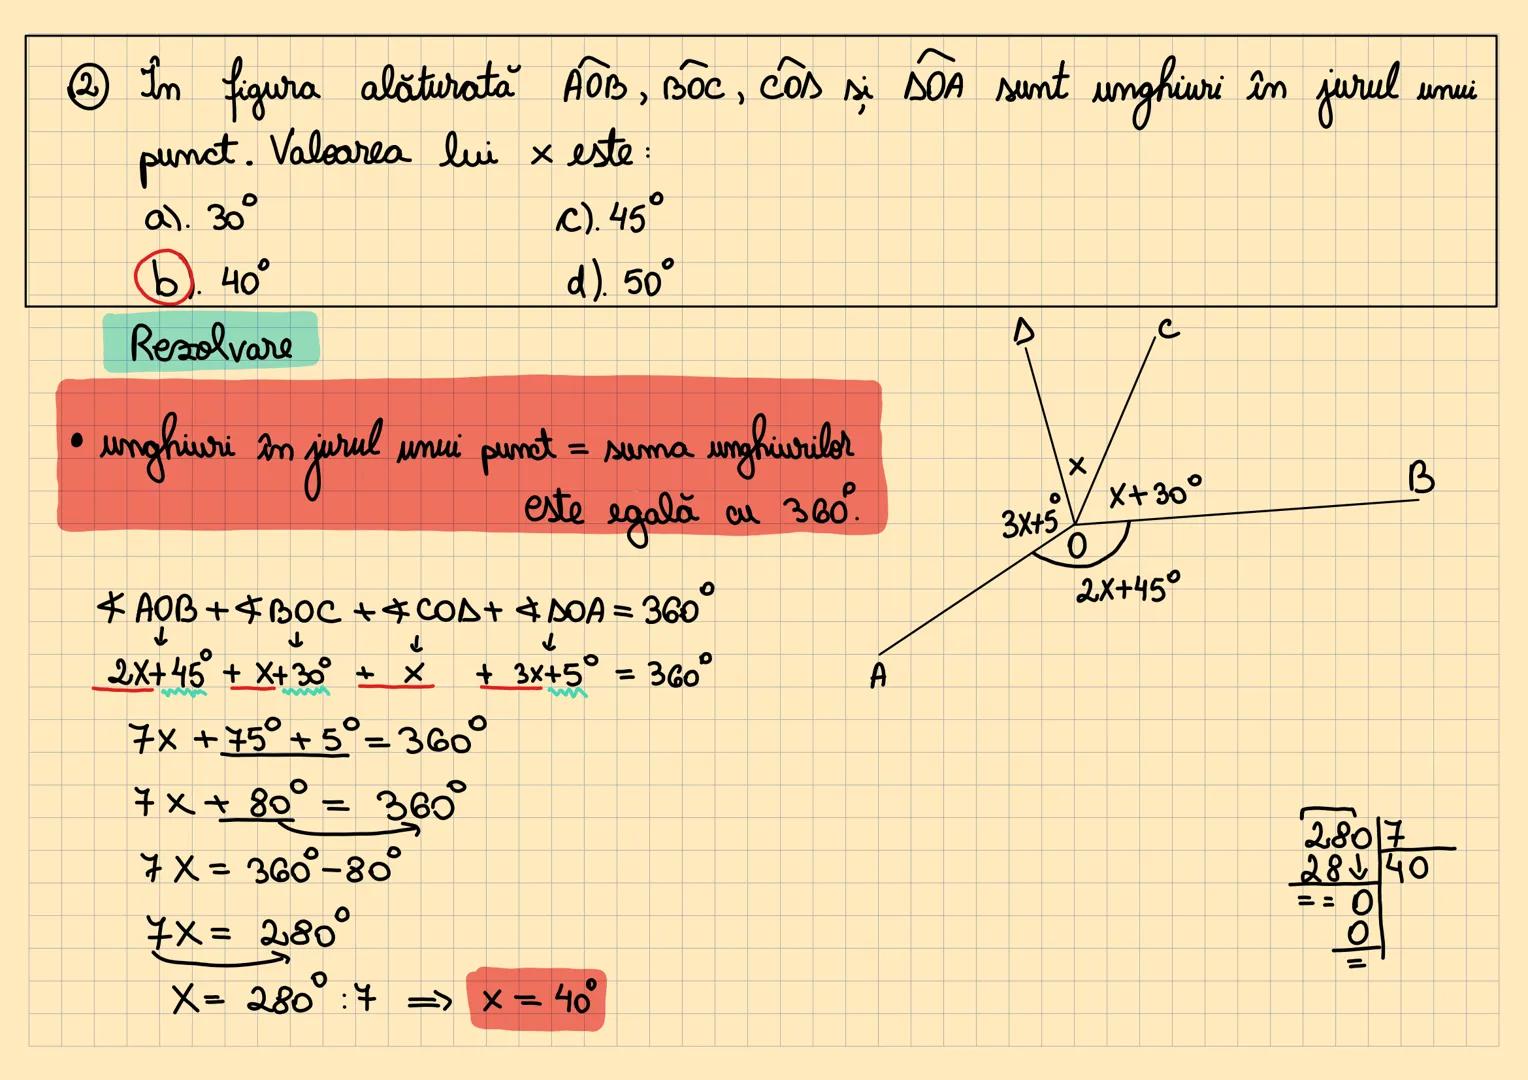 ② În figura alăturată AOB, BOC, COD și DOA sunt unghiuri în jurul unui
punct. Valoarea lui x este:
a). 30° c). 45°
b). 40° d). 50°
Rezolvare
• unghiuri în jurul unui punct = suma unghiurilor
este egală cu 360°.
D C
x
B
3x+5° x+30°
O
2x+45°
A
∢AOB + ∢BOC + ∢COD + ∢DOA = 360°
↓ ↓ ↓ ↓
2x+45° + x+30° + x + 3x+5° = 360°
7x + 75° + 5° = 360°
7x + 80° = 360°
7x = 360° - 80°
7x = 280°
x = 280° : 7 ⟹ x = 40°
280 | 7
28↓ | 40
= = 0
0
=